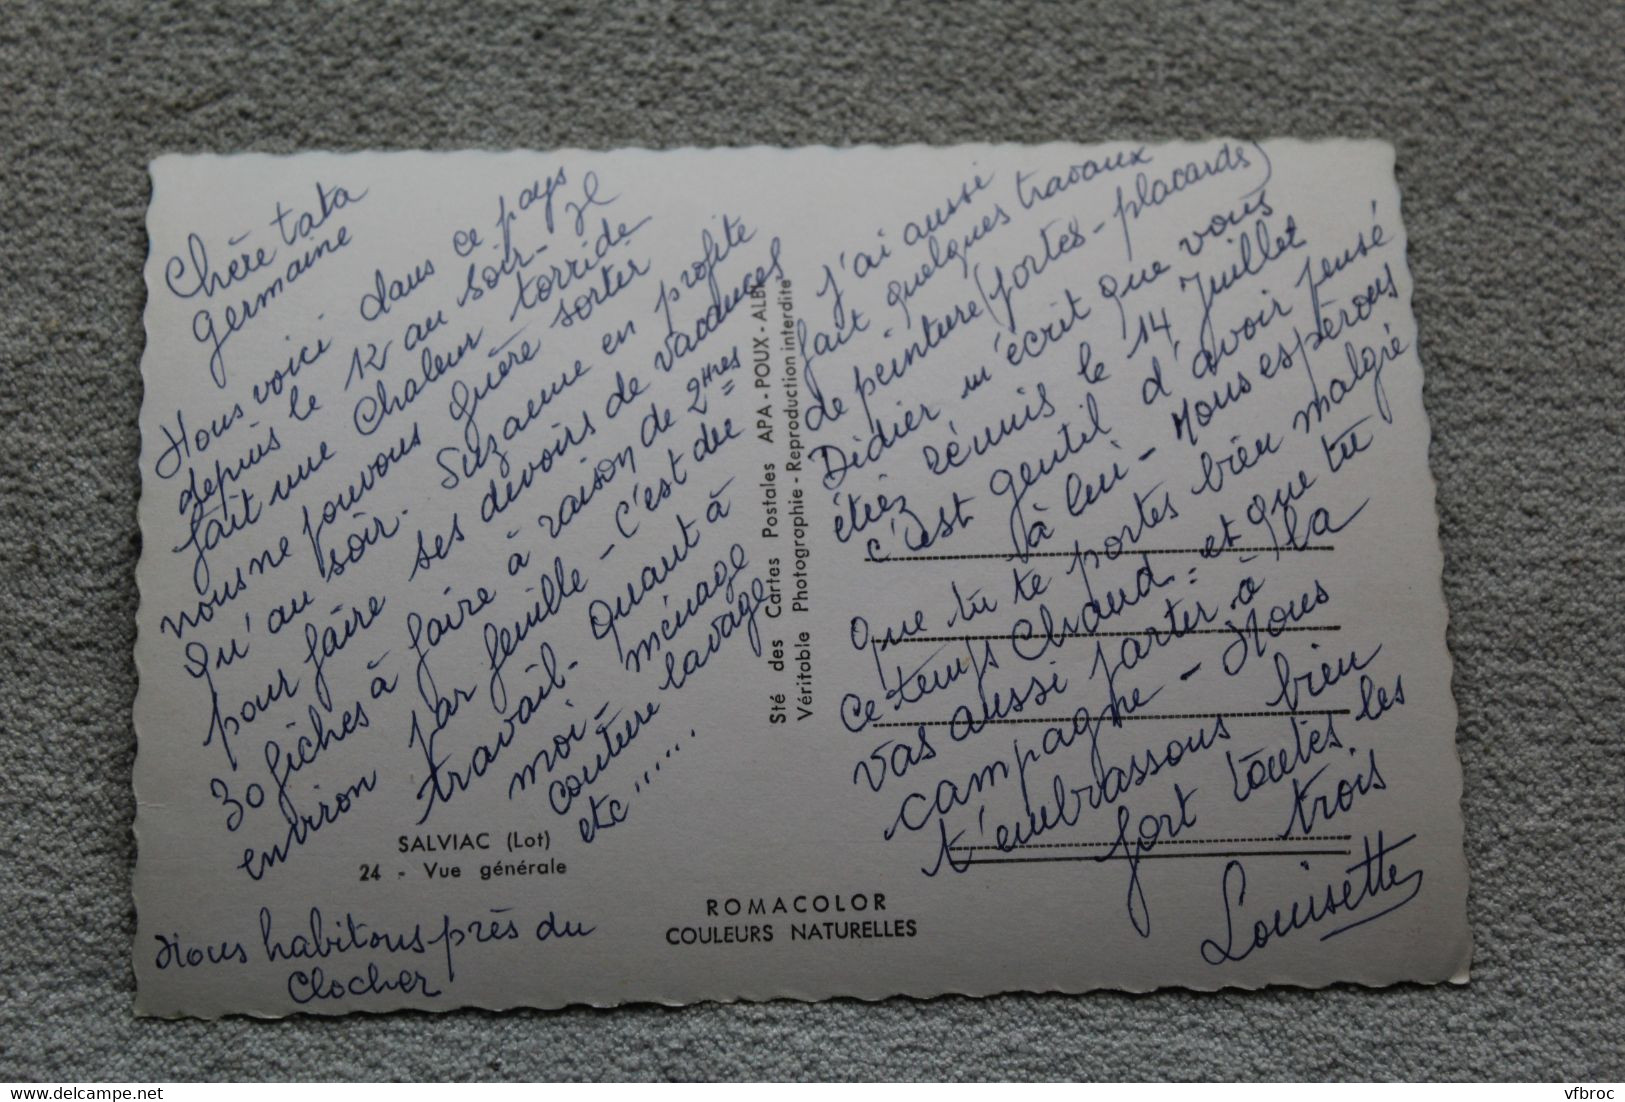 Chère tata
germaine
Nous voici dans ce pays
depuis le 12 au soir - Il
fait une chaleur torride
nous ne pouvons guère sortir
qu'au soir. Suzanne en profite
pour faire ses devoirs de vacances
30 fiches à faire à raison de 2Hres
environ par feuille - C'est du
travail - Quant à
moi - ménage
couture lavage
etc.......
SALVIAC (Lot)
24 - Vue générale
Nous habitons près du
Clocher
Sté des Cartes Postales APA-POUX - ALBI
Véritable Photographie - Reproduction interdite
ROMACOLOR
COULEURS NATURELLES
J'ai aussi
fait quelques travaux
de peinture (portes - placards)
Didier m'écrit que vous
étiez réunis le 14 Juillet
c'est gentil d'avoir pensé
à lui - Nous espérons
que tu te portes bien malgré
ce temps chaud - et que tu
vas aussi partir à la
campagne - Nous
t'embrassons bien
fort toutes les
trois
Louisette
delcampe.net
vfbroc